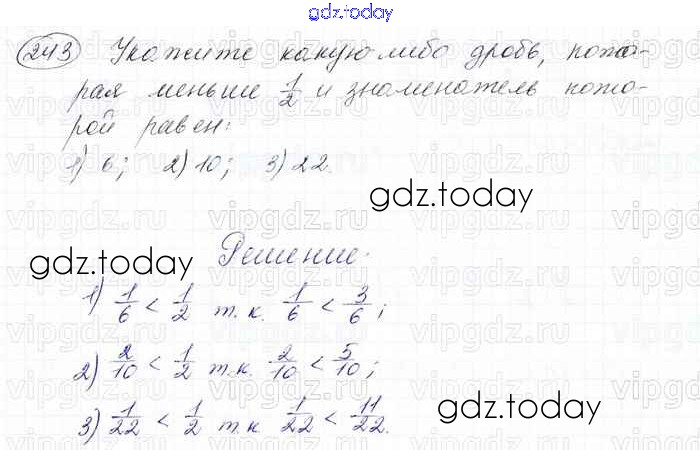 gdz.today
243 Укажите какую-либо дробь, кото-
рая меньше 1/2 и знаменатель кото-
рой равен:
1) 6; 2) 10; 3) 22.
gdz.today
Решение:
gdz.today
1) 1/6 < 1/2 т.к. 1/6 < 3/6;
2) 2/10 < 1/2 т.к. 2/10 < 5/10;
3) 1/22 < 1/2 т.к. 1/22 < 11/22.
gdz.today
vipgdz.ru